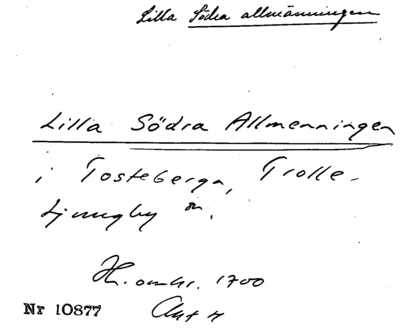 Lilla Södra allmänningen
Lilla Södra Allmenningen
i Tosteberga, Trolle-
Ljungby sn.
H. omkr. 1700
Nr 10877